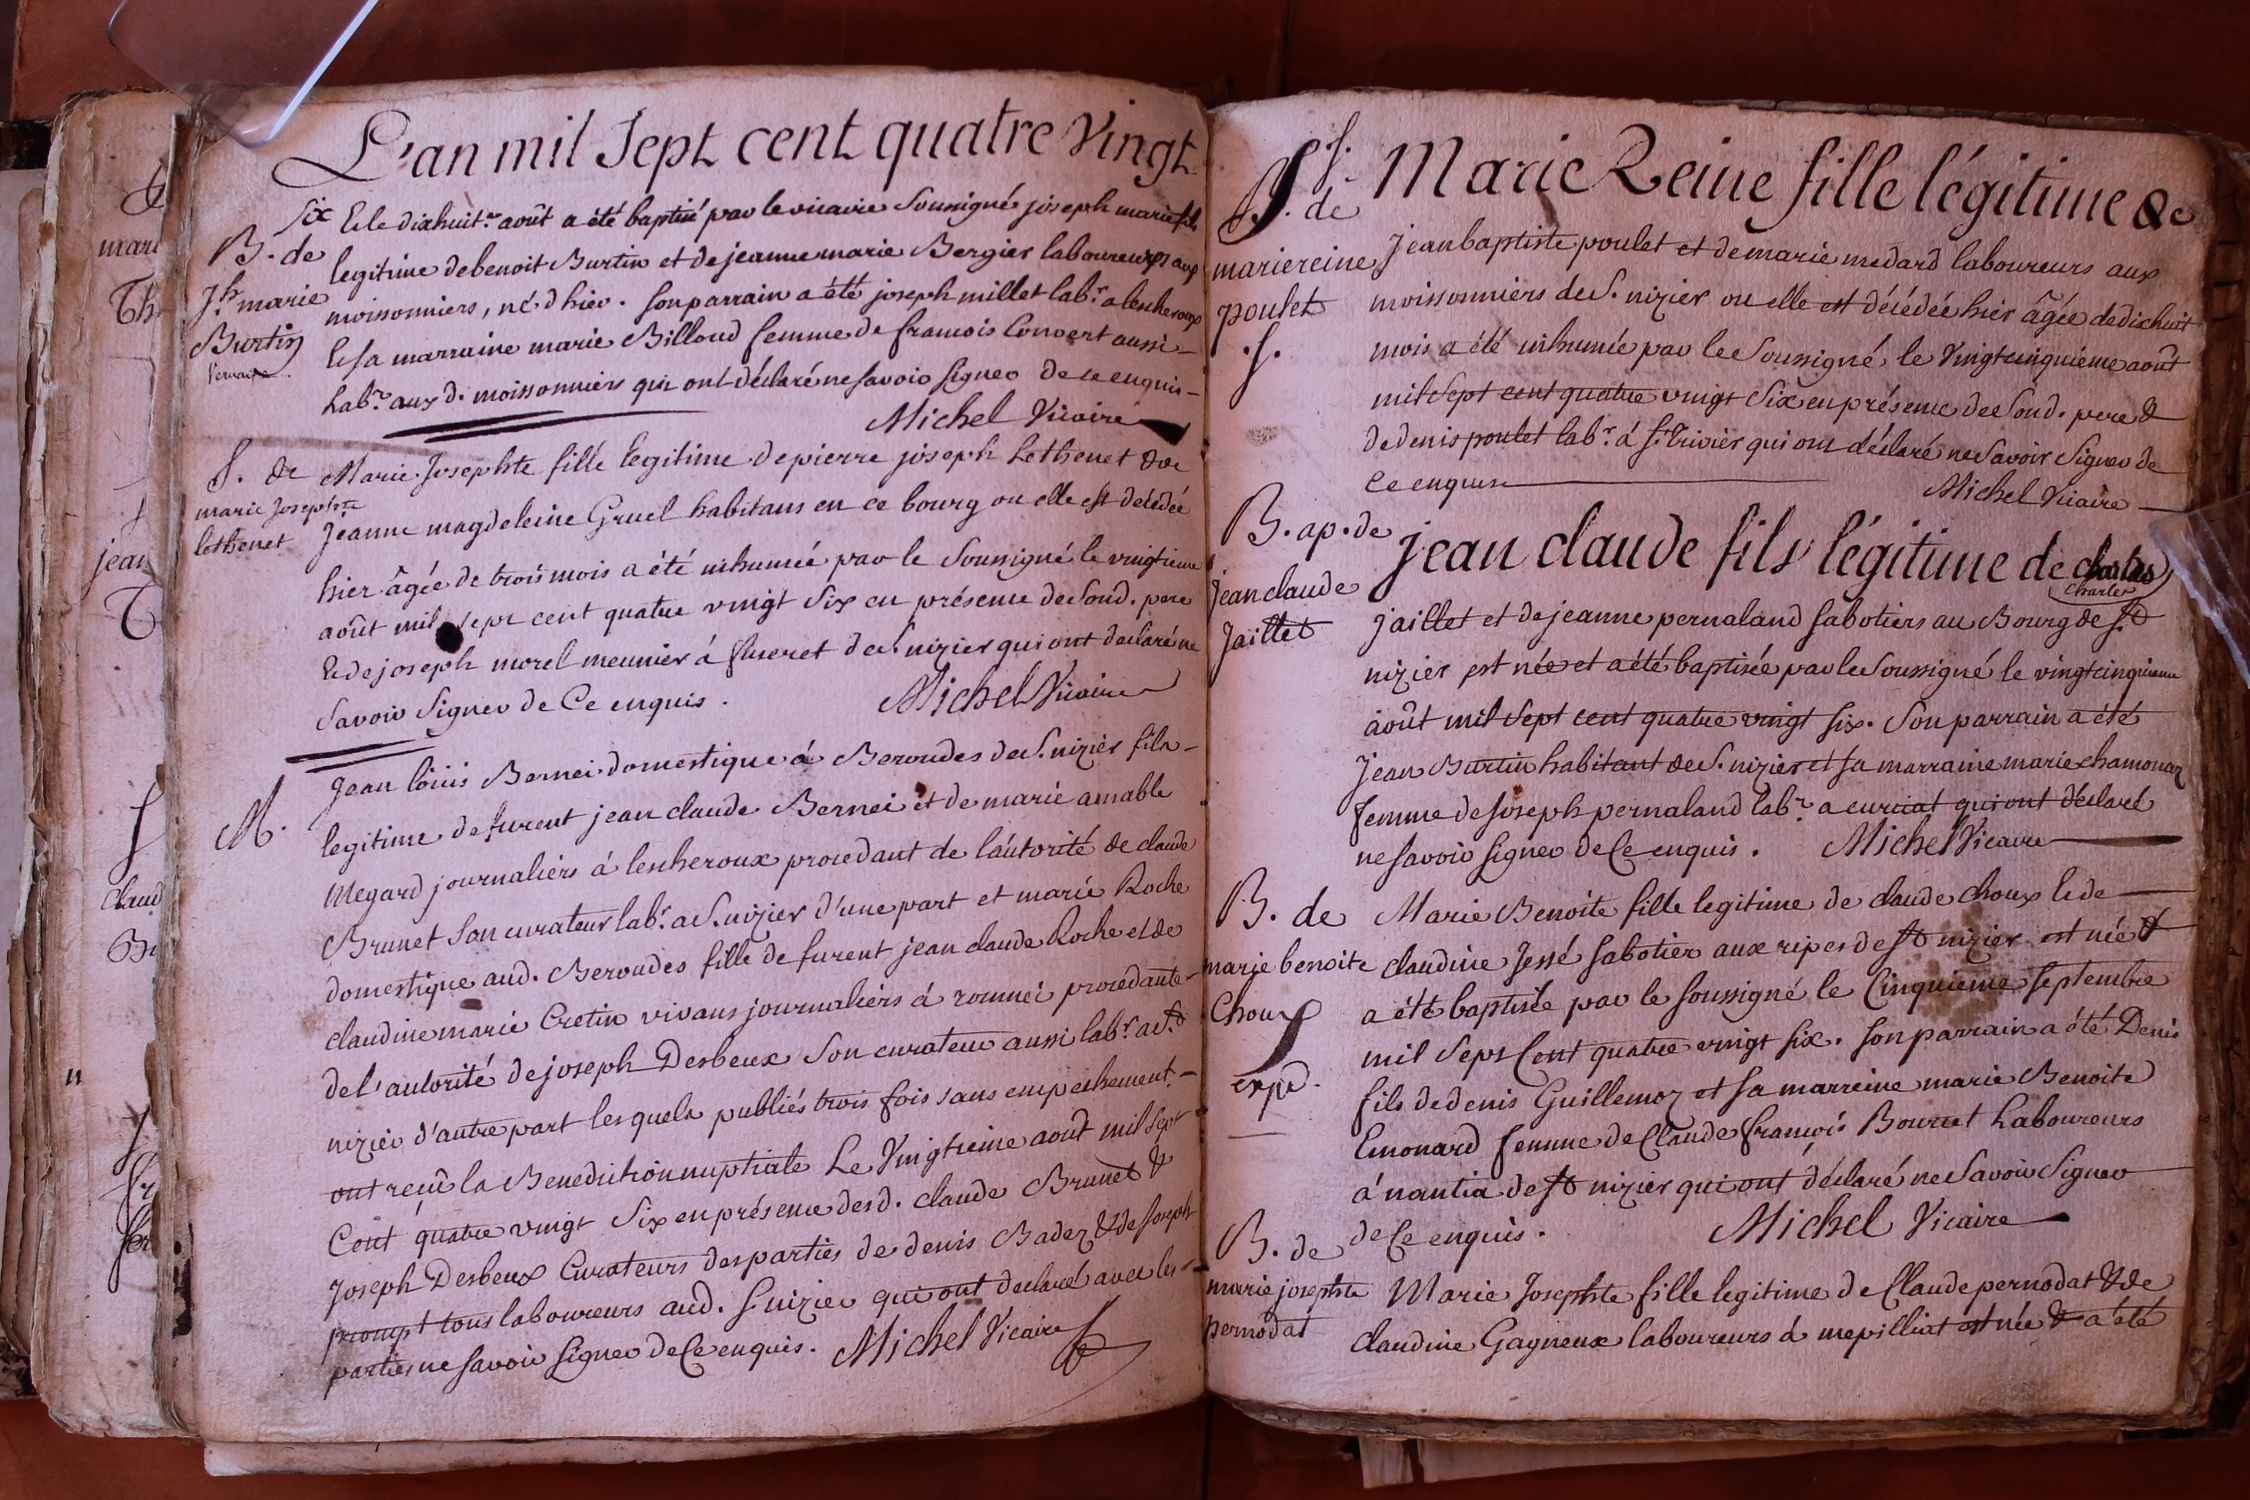 L'an mil Sept cent quatre Vingt
Six & le dixhuit.e août a été baptisé par le vicaire Soussigné joseph marie fils
B. de
J.h marie
Burtin
legitime de benoit Burtin et de jeanne marie Bergier laboureurs aux
moissonniers, né d'hier. Son parrain a été joseph millet lab.r a lescheroux
& sa marraine marie Billoud femme de francois Convert aussi
lab.rs aux d. moissonniers qui ont déclaré ne savoir signer de ce enquis
Michel Vicaire
S. de
marie Josephte
lethenet
Marie Josephte fille legitime de pierre joseph Lethenet & de
Jeanne magdeleine Gruel habitans en ce bourg ou elle est décédée
hier âgée de trois mois a été inhumée par le Soussigné le vingtieme
août mil sept cent quatre vingt Six en présence de Sond. pere
& de joseph morel meunier á flueret de S. nizier qui ont declaré ne
Savoir Signer de Ce enquis.
Michel Vicaire
M.
Jean loüis Bernei domestique á Beroudes de S. nizier fils
legitime de furent jean claude Bernei et de marie amable
Megard journaliers á lescheroux procedant de l'autorité de claude
Brunet Son curateur lab.r a S. nizier d'une part et marie Roche
domestique aud. Beroudes fille de furent jean claude Roche et de
claudine marie Cretin vivans journaliers á romnei procedante
de l'autorité de joseph Desbeux Son curateur aussi lab.r a S.t
nizier d'autre part lesquels publiés trois fois sans empeshement
ont reçû la Benediction nuptiale Le Vingtieme août mil Sept
Cent quatre vingt Six en présence desd. claude Brunet &
Joseph Desbeux Curateurs des parties de denis Badez & de Joseph
prompt tous laboureurs aud. S. nizier qui ont declaré avec les
parties ne savoir signer de Ce enquis. Michel Vicaire
S. de
marie reine
poulet
S.
Marie Reine fille légitime de
Jean baptiste poulet et de marie medard laboureurs aux
moissonniers de S. nizier ou elle est décédée hier âgée de dixhuit
mois a été inhumée par le Soussigné le Vingtcinquieme août
mil Sept cent quatre vingt Six en présence de Sond. pere &
de denis poulet lab.r á S.t trivier qui ont déclaré ne Savoir Signer de
Ce enquis
Michel Vicaire
B. ap. de
jean claude
Jaillet
jean claude fils légitime de charles
Charles
jaillet et de jeanne pernaland Sabotiers au Bourg de S.t
nizier est née et a été baptisée par le Soussigné le vingtcinquieme
août mil Sept cent quatre vingt six. Son parrain a été
Jean Burtin habitant de S. nizier et sa marraine marie chamonaz
femme de Joseph pernaland lab.r a curciat qui ont déclaré
ne Savoir signer de Ce enquis. Michel Vicaire
B. de
marie benoite
Choux
expd.
Marie Benoite fille legitime de claude choux & de
claudine Jessé Sabotier aux ripes de St nizier est née &
a été baptisée par le Soussigné le Cinquieme Septembre
mil Sept Cent quatre vingt six. Son parrain a été Denis
fils de denis Guillemoz et sa marreine marie Benoite
Emonard femme de Claude françois Bourcet Laboureurs
á nantia de St nizier qui ont déclaré ne Savoir Signer
de Ce enquis.
Michel Vicaire
B. de
marie josephte
pernodat
Marie Josephte fille legitime de Claude pernodat & de
claudine Gagneux laboureurs á mepilliat est née & a été